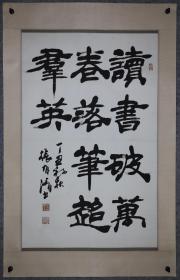 讀書破萬
卷落筆超
羣英
丁亥初秋
張